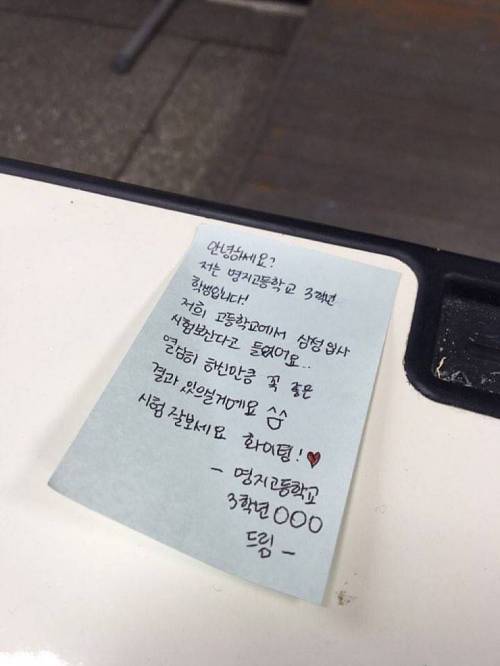 안녕하세요?
저는 명지고등학교 3학년
학생입니다!
저희 고등학교에서 삼성 입사
시험보신다고 들었어요..
열심히 하신만큼 꼭 좋은
결과 있으실거에요 ^^
시험 잘보세요 화이팅!♥
- 명지고등학교
3학년 OOO
드림 -